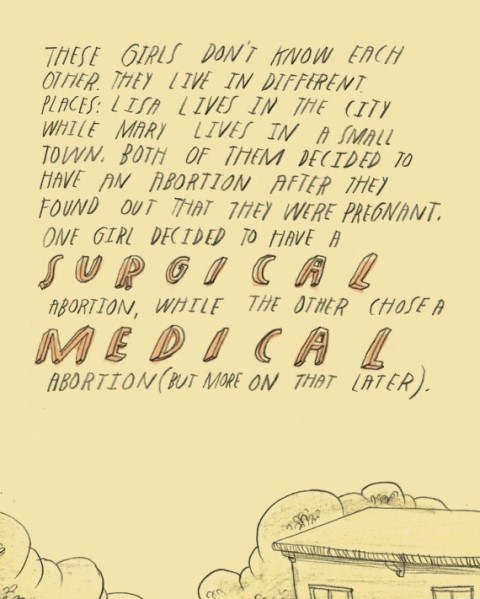 THESE GIRLS DON'T KNOW EACH
OTHER. THEY LIVE IN DIFFERENT
PLACES: LISA LIVES IN THE CITY
WHILE MARY LIVES IN A SMALL
TOWN. BOTH OF THEM DECIDED TO
HAVE AN ABORTION AFTER THEY
FOUND OUT THAT THEY WERE PREGNANT.
ONE GIRL DECIDED TO HAVE A
SURGICAL
ABORTION, WHILE THE OTHER CHOSE A
MEDICAL
ABORTION (BUT MORE ON THAT LATER).